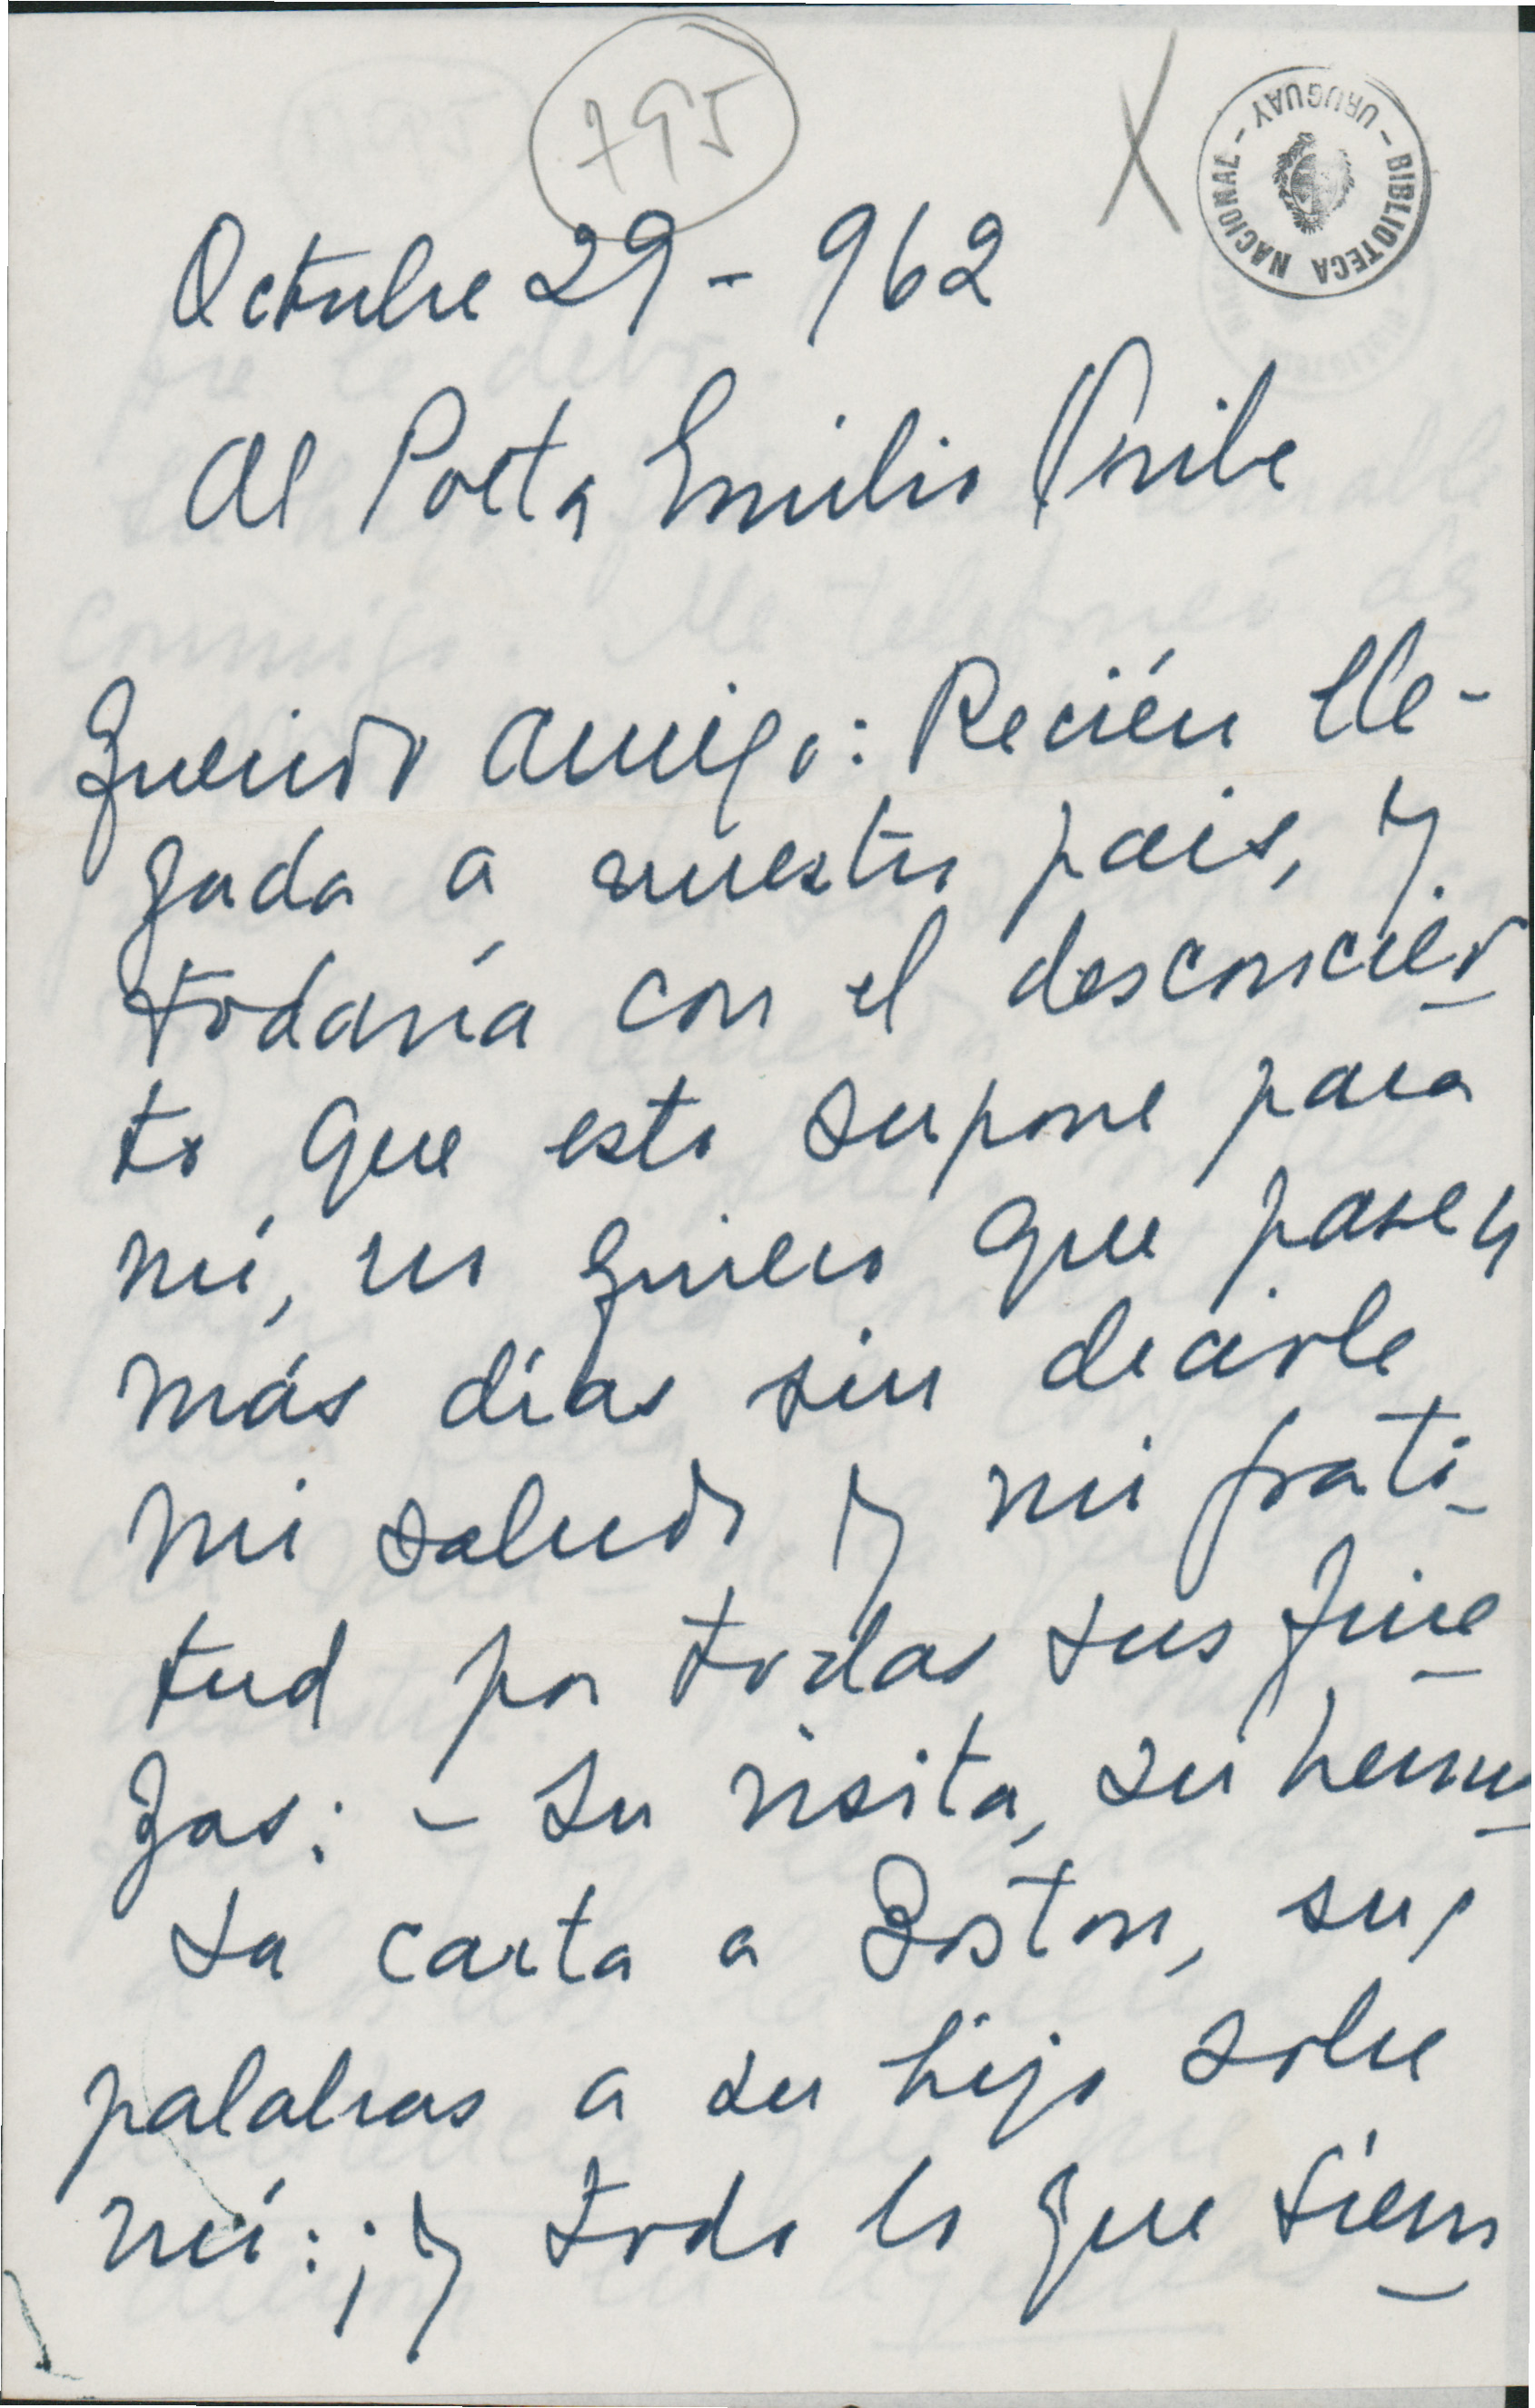 795
X
URUGUAY - BIBLIOTECA NACIONAL -
Octubre 29 - 962
Al Poeta Emilio Oribe
Querido amigo: Recién lle-
gada a nuestro pais, y
todavía con el desconcier
to que esto supone para
mí, no quiero que pasen
más días sin decirle
mi saludo y mi grati-
tud por todas sus fine
zas: - Su visita, su hermo
sa carta a Boston, sus
palabras a su hijo sobre
mí: ; y todo lo que siem